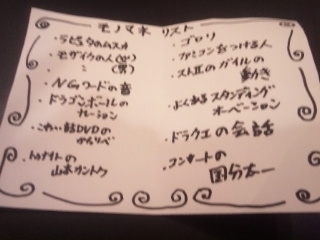 モノマネ リスト
・ラピュタのムスカ
・モザイクの人(女)
・ 〃 (男)
・NGワードの音
・ドラゴンボールの
ナレーション
・こわい話DVDの
・トゥナイトの
山本カントク
・ゴロリ
・ファミコンをつける人
・ストⅡのガイルの
動き
・よくあるスタンディング
オベーション
・ドラクエの会話
・コンサートの
国分太一